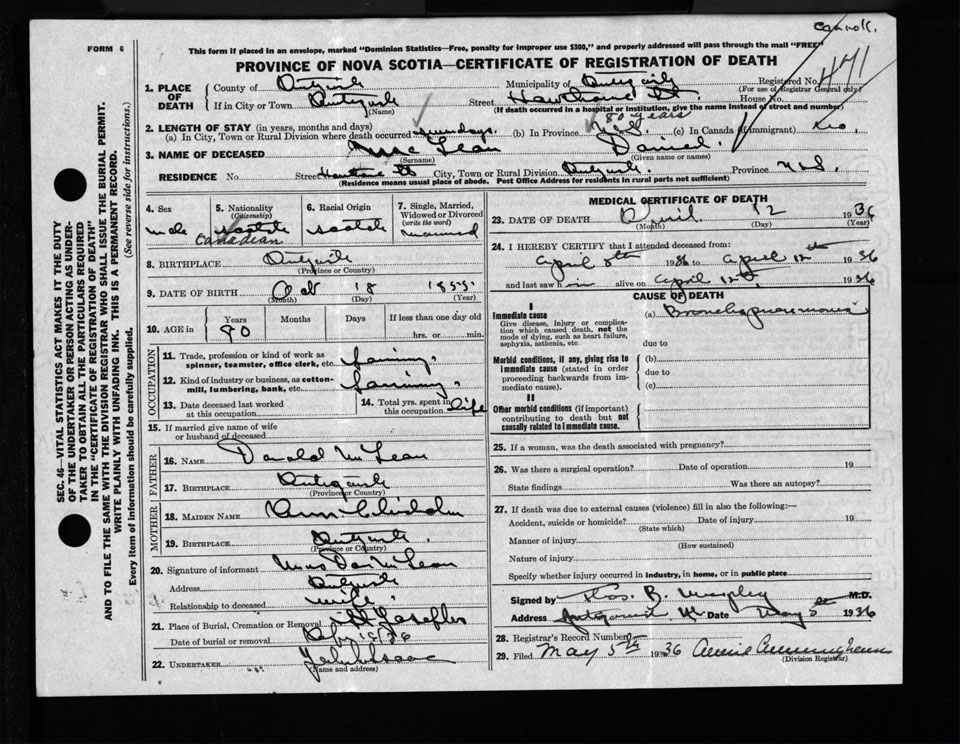 Carroll.
FORM 6
This form if placed in an envelope, marked "Dominion Statistics—Free, penalty for improper use $300," and properly addressed will pass through the mail "FREE"
PROVINCE OF NOVA SCOTIA—CERTIFICATE OF REGISTRATION OF DEATH
471
1. PLACE OF DEATH
County of Antigonish Municipality of Antigonish Registered No.
(For use of Registrar General only)
If in City or Town Antigonish Street Hawthorne St House No.
(Name) (If death occurred in a hospital or institution, give the name instead of street and number)
80 years
2. LENGTH OF STAY (in years, months and days)
(a) In City, Town or Rural Division where death occurred (b) In Province N.S. (c) In Canada (if immigrant)
3. NAME OF DECEASED MacLean Daniel
(Surname) (Given name or names)
RESIDENCE No. Street Hawthorne St City, Town or Rural Division Antigonish. Province N.S.
(Residence means usual place of abode. Post Office Address for residents in rural parts not sufficient)
4. Sex
male
5. Nationality
(Citizenship)
Scotch
Canadian
6. Racial Origin
Scotch
7. Single, Married, Widowed or Divorced
(write the word)
Married
8. BIRTHPLACE Antigonish
(Province or Country)
9. DATE OF BIRTH Oct 18
(Month) (Day) (Year)
10. AGE in
Years Months Days If less than one day old
hrs. or min.
OCCUPATION
11. Trade, profession or kind of work as spinner, teamster, office clerk, etc. farming.
12. Kind of industry or business, as cotton-mill, lumbering, bank, etc. farming.
13. Date deceased last worked at this occupation
14. Total yrs. spent in this occupation life
15. If married give name of wife or husband of deceased
FATHER
16. NAME Donald McLean
17. BIRTHPLACE Antigonish
(Province or Country)
MOTHER
18. MAIDEN NAME Ann Chisholm
19. BIRTHPLACE Antigonish.
(Province or Country)
20. Signature of informant Mrs Dan McLean
Address Antigonish
Relationship to deceased wife.
21. Place of Burial, Cremation or Removal St Josephs
Date of burial or removal
22. UNDERTAKER
(Name and address)
MEDICAL CERTIFICATE OF DEATH
23. DATE OF DEATH April 12 1936
(Month) (Day) (Year)
24. I HEREBY CERTIFY that I attended deceased from:
April 8th 1936 to April 12th 1936
and last saw him alive on April 12th 1936
CAUSE OF DEATH
I
Immediate cause (a) Bronchopneumonia
Give disease, injury or complication which caused death, not the mode of dying, such as heart failure, asphyxia, asthenia, etc.
due to
Morbid conditions, if any, giving rise to immediate cause (stated in order proceeding backwards from immediate cause).
(b)
due to
(c)
II
Other morbid conditions (if important) contributing to death but not causally related to immediate cause.
25. If a woman, was the death associated with pregnancy?
26. Was there a surgical operation? Date of operation 19
State findings Was there an autopsy?
27. If death was due to external causes (violence) fill in also the following:—
Accident, suicide or homicide? Date of injury 19
(State which)
Manner of injury
(How sustained)
Nature of injury
Specify whether injury occurred in industry, in home, or in public place
Signed by M.D.
Address Antigonish NS Date May 1936
28. Registrar's Record Number
29. Filed May 5th 1936 Annie Cunningham
(Division Registrar)
SEC. 46—VITAL STATISTICS ACT MAKES IT THE DUTY
OF THE UNDERTAKER OR PERSON ACTING AS UNDER-
TAKER TO OBTAIN ALL THE PARTICULARS REQUIRED
IN THE "CERTIFICATE OF REGISTRATION OF DEATH"
AND TO FILE THE SAME WITH THE DIVISION REGISTRAR WHO SHALL ISSUE THE BURIAL PERMIT.
WRITE PLAINLY WITH UNFADING INK. THIS IS A PERMANENT RECORD.
Every item of information should be carefully supplied. (See reverse side for instructions.)